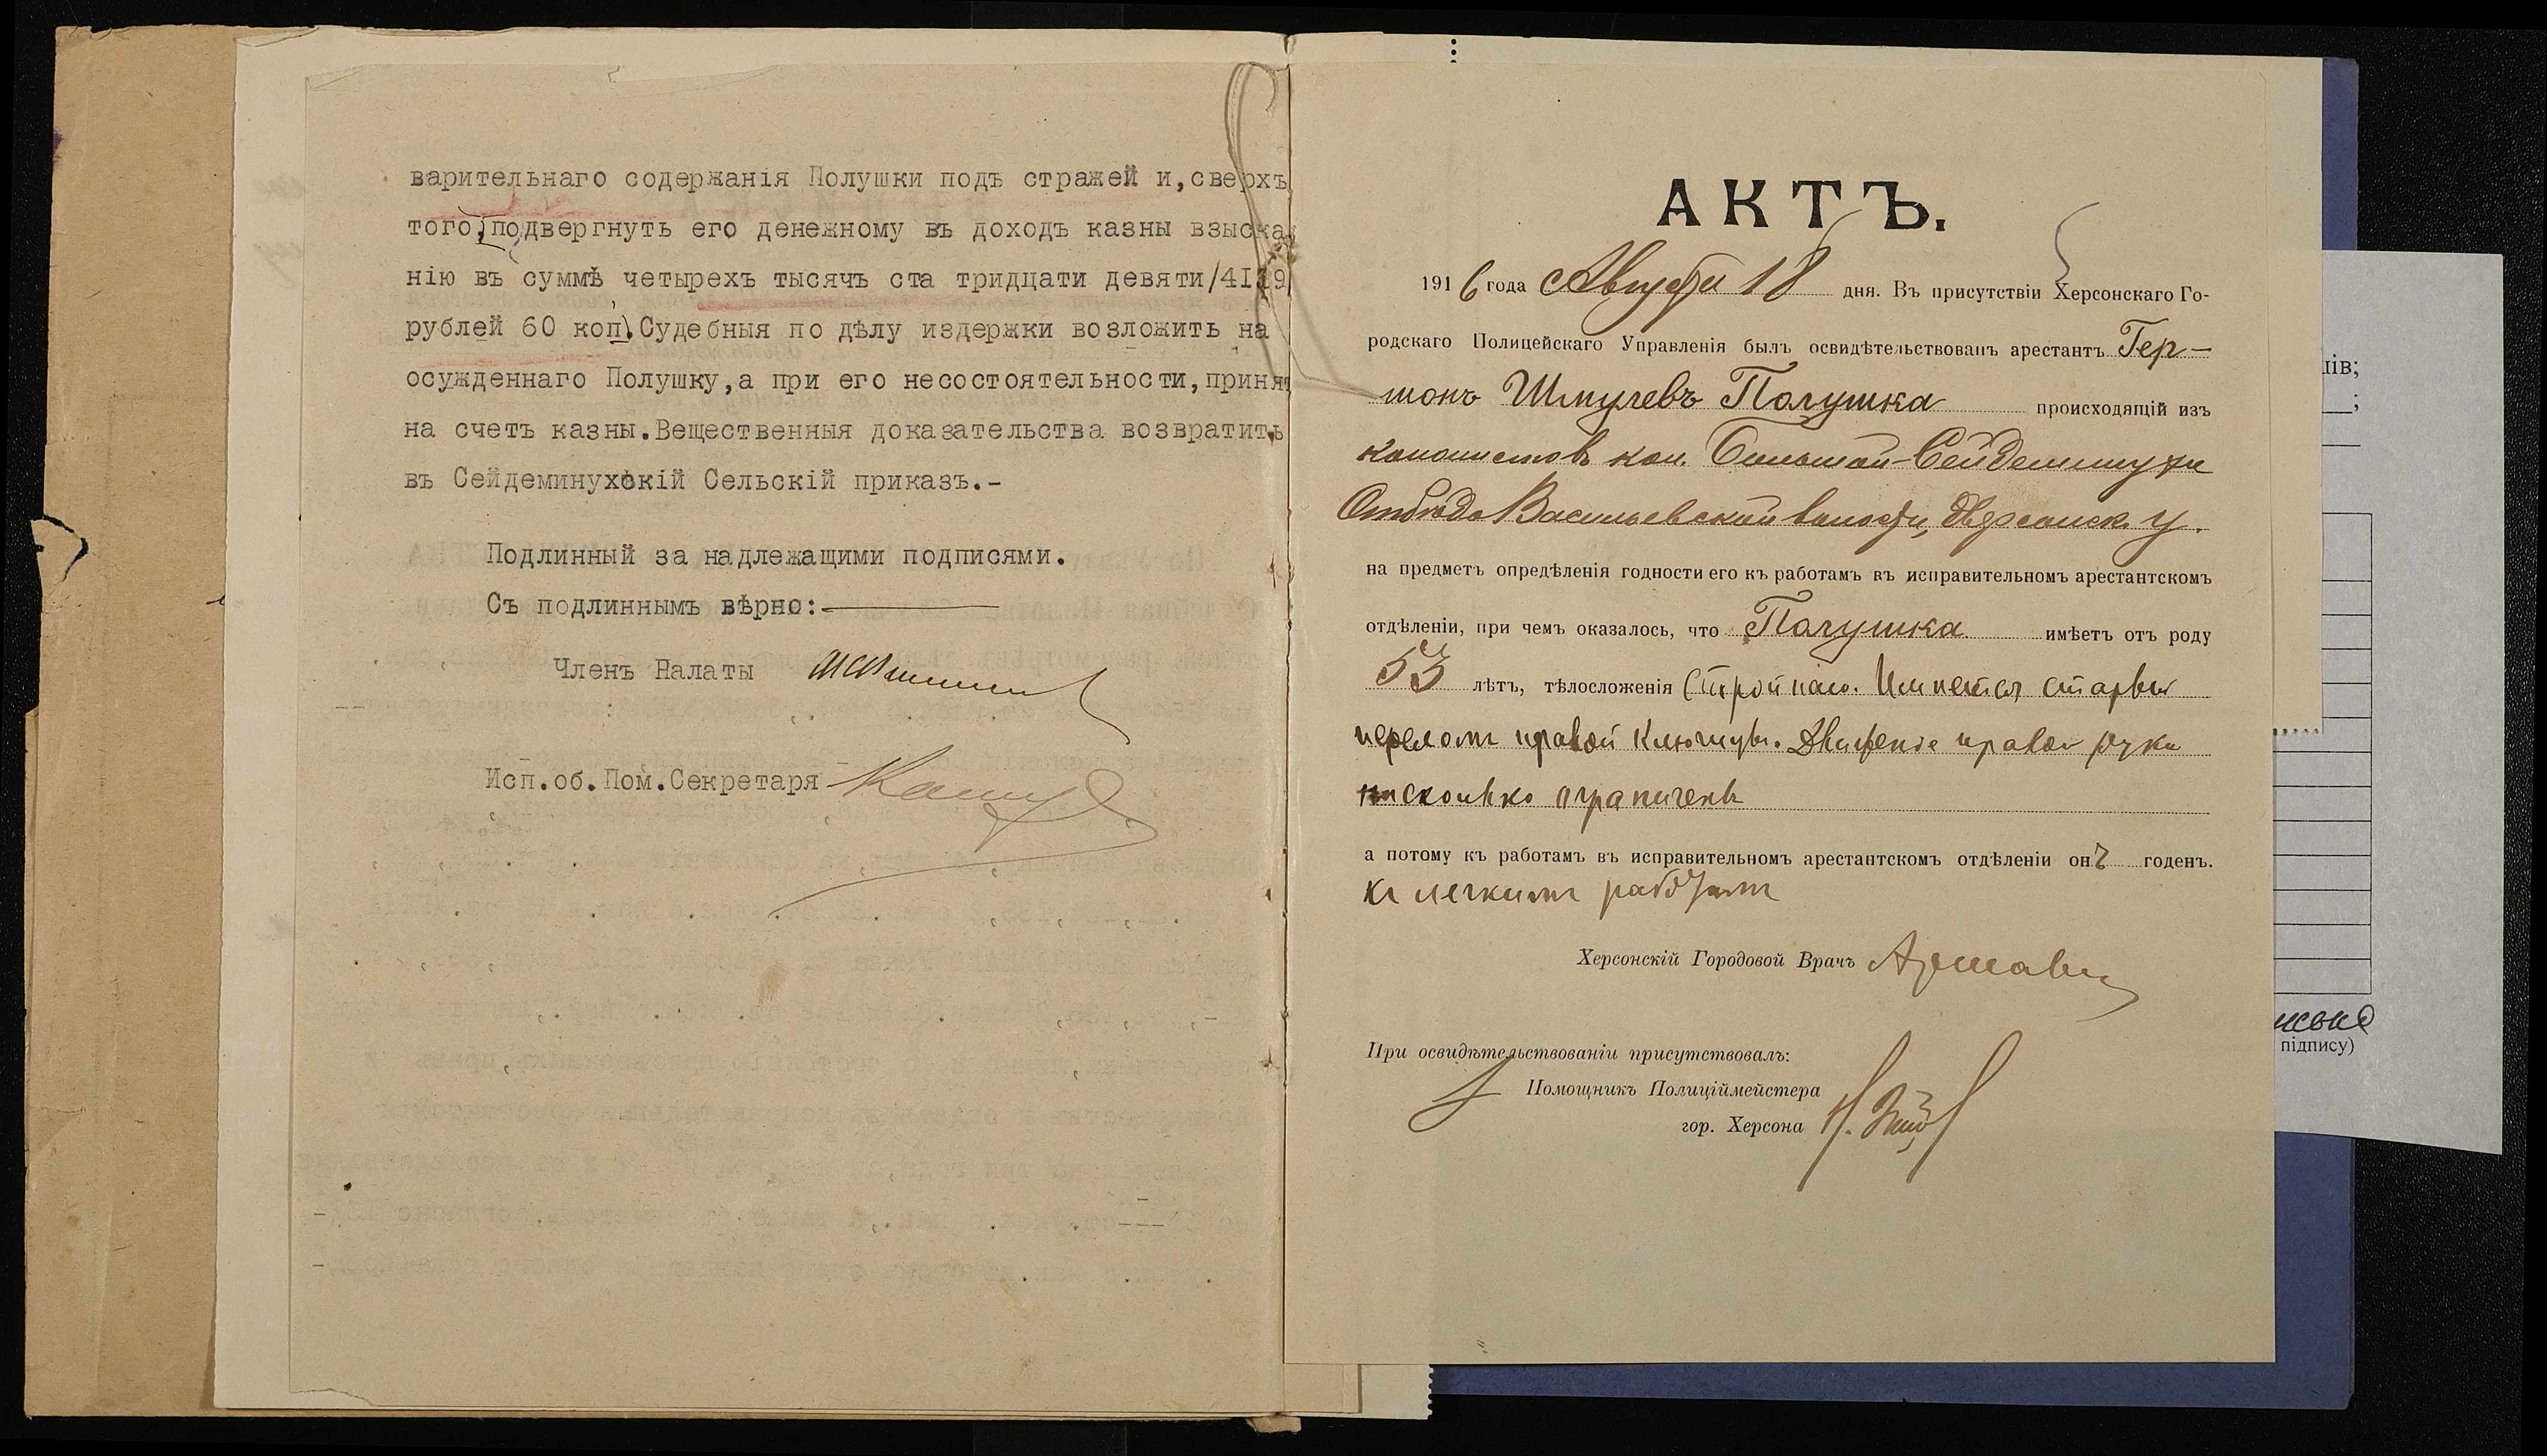 варительнаго содержанія Полушки подъ стражей и,сверхъ
того,подвергнуть его денежному въ доходъ казны взыска
нію въ суммѣ четырехъ тысячъ ста тридцати девяти/4139
рублей 60 коп.Судебныя по дѣлу издержки возложить на
осужденнаго Полушку,а при его несостоятельности,принят
на счетъ казны.Вещественныя доказательства возвратить
въ Сейдеминухскій Сельскій приказъ.-
Подлинный за надлежащими подписями.
Съ подлиннымъ вѣрно:
Членъ Палаты
Исп.об.Пом.Секретаря
АКТЪ.
1916 года Августа 18 дня. Въ присутствіи Херсонскаго Го-
родскаго Полицейскаго Управленія былъ освидѣтельствованъ арестантъ Гер-
шонъ Шмулевъ Полушка происходящій изъ
колонистовъ кол. Большой-Сейдеминухи
Отбѣдо Васильевской волости, Херсонск. у.
на предметъ опредѣленія годности его къ работамъ въ исправительномъ арестантскомъ
отдѣленіи, при чемъ оказалось, что Полушка имѣетъ отъ роду
53 лѣтъ, тѣлосложенія Стройнаго. Имѣется старый
переломъ правой ключицы. Движеніе правой руки
нѣсколько ограничены
а потому къ работамъ въ исправительномъ арестантскомъ отдѣленіи онъ годенъ.
къ легкимъ работамъ
Херсонскій Городовой Врачъ
При освидѣтельствованіи присутствовалъ:
Помощникъ Полиціймейстера
гор. Херсона
ів;
підпису)